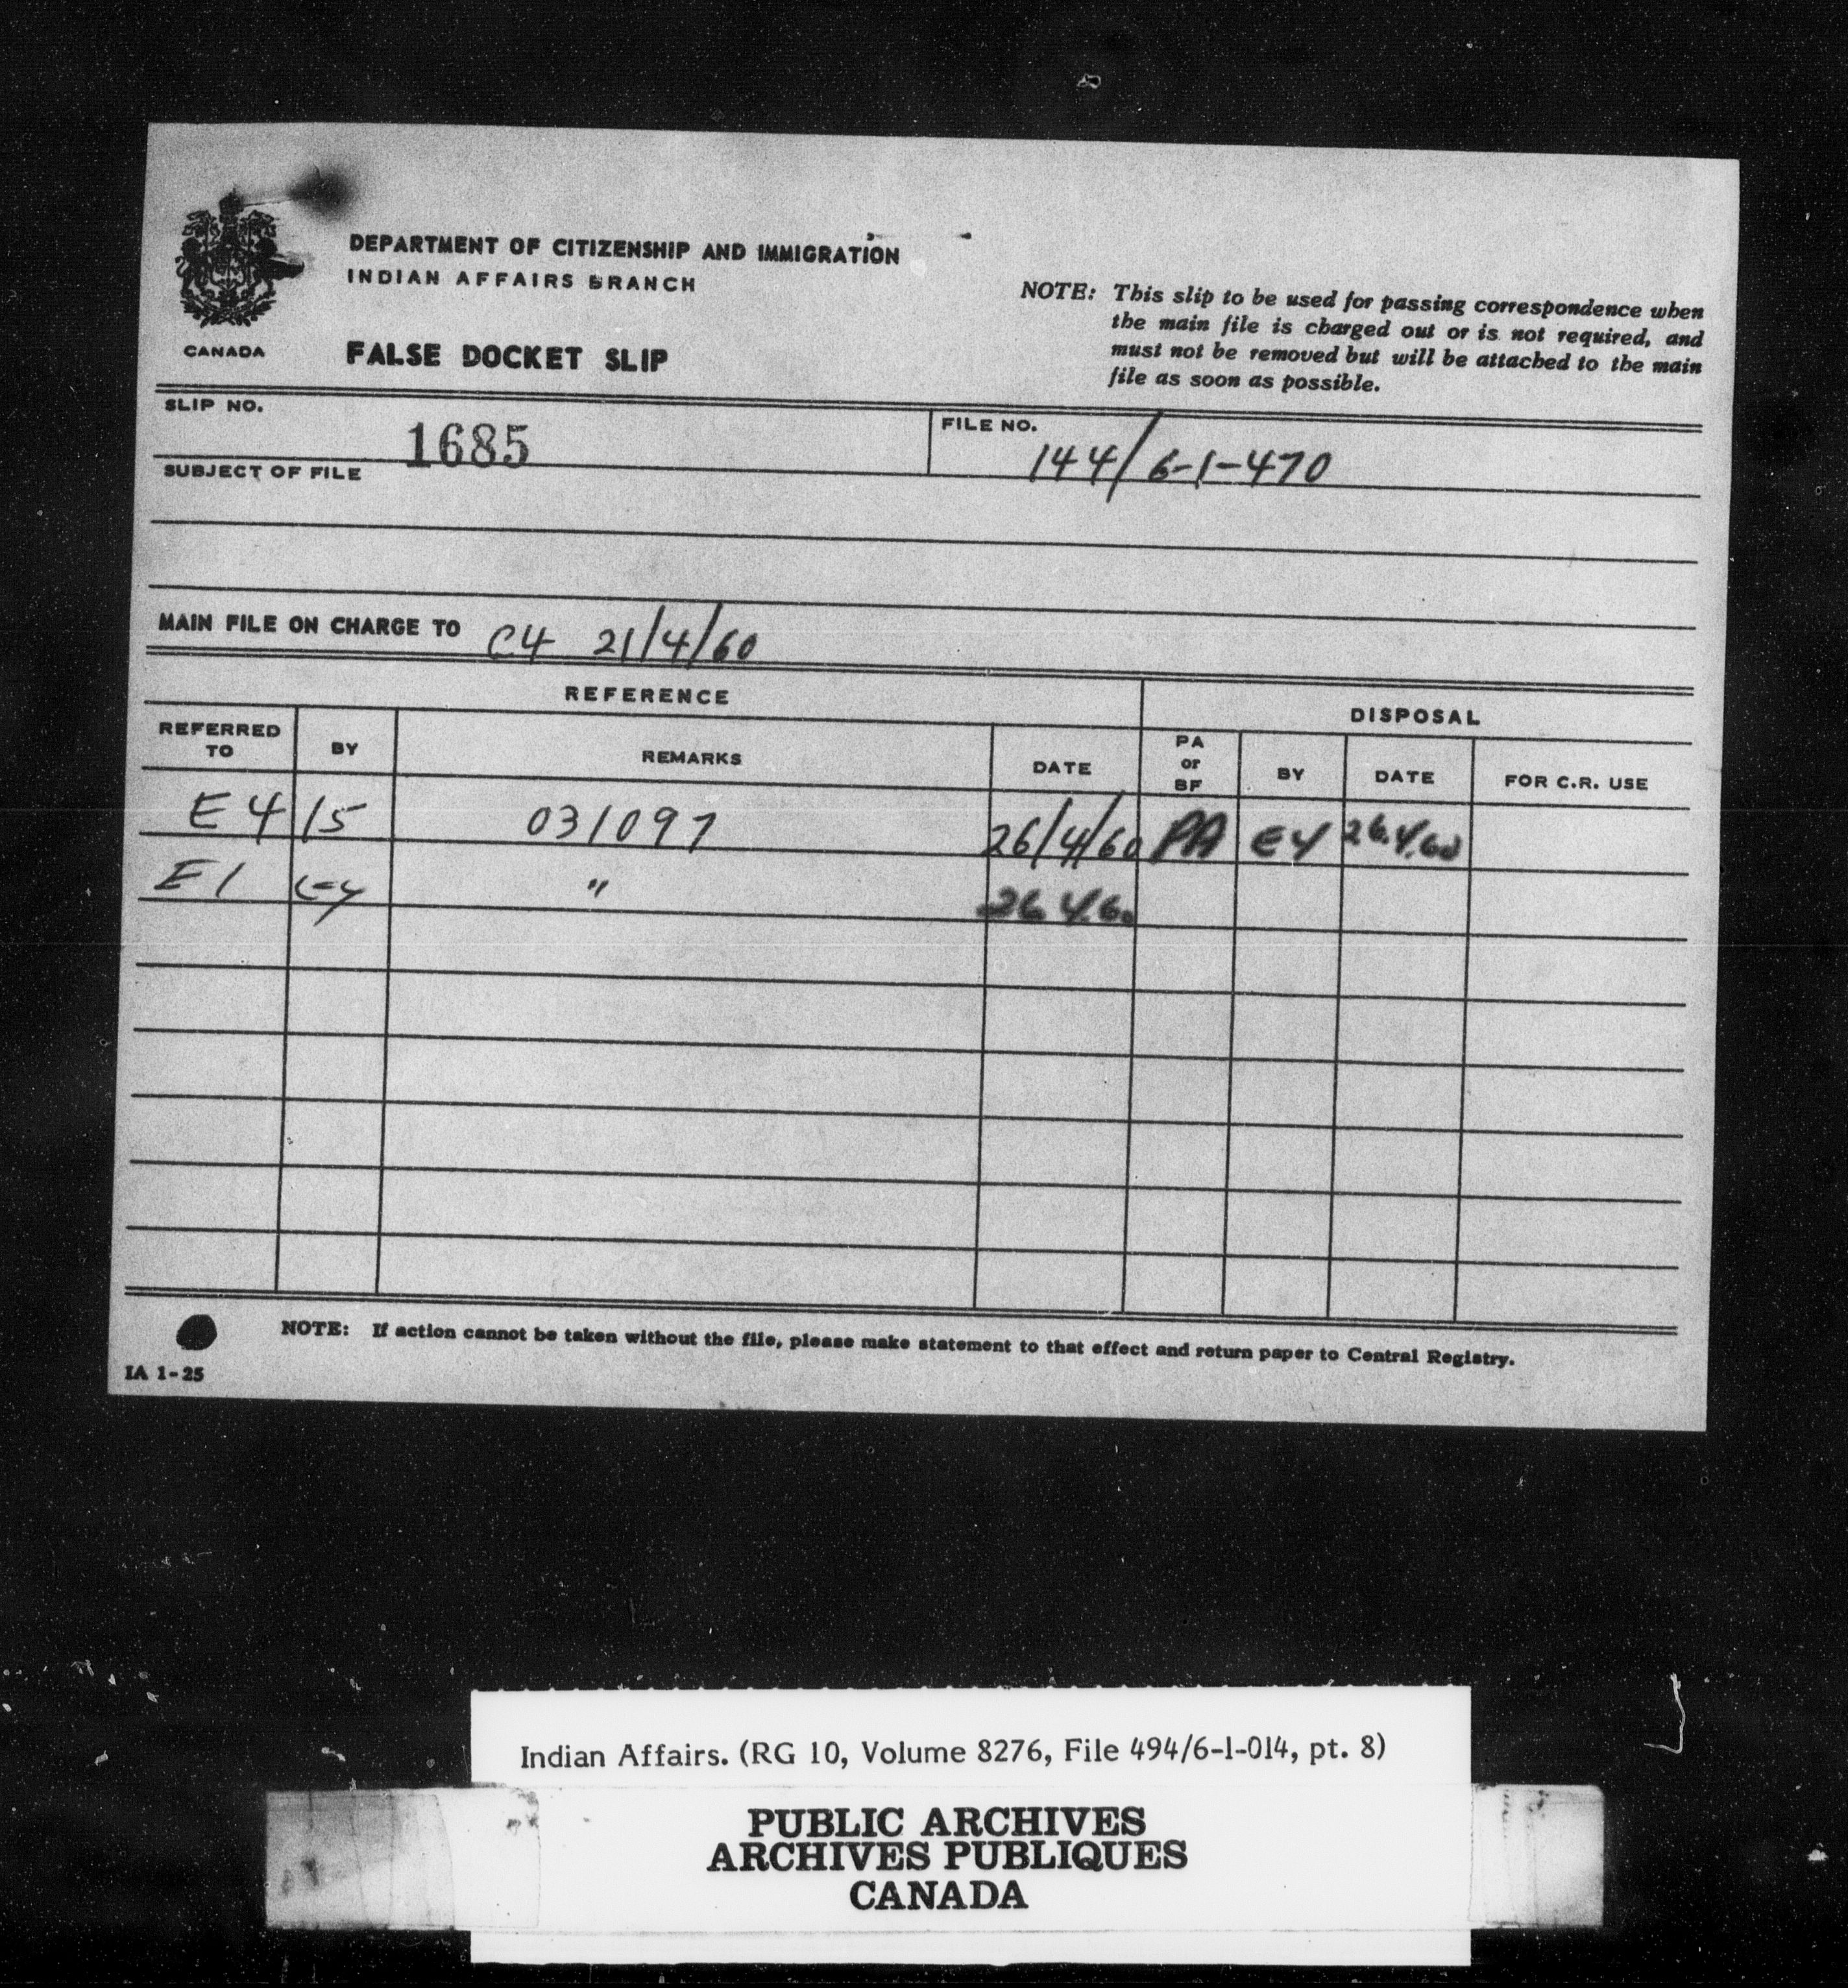 DEPARTMENT OF CITIZENSHIP AND IMMIGRATION
INDIAN AFFAIRS BRANCH
CANADA
FALSE DOCKET SLIP
NOTE: This slip to be used for passing correspondence when
the main file is charged out or is not required, and
must not be removed but will be attached to the main
file as soon as possible.
SLIP NO. 1685
FILE NO. 144/6-1-470
SUBJECT OF FILE
MAIN FILE ON CHARGE TO C4 21/4/60
REFERENCE
DISPOSAL
REFERRED TO BY REMARKS DATE PA or BF BY DATE FOR C.R. USE
E4 15 031097 26/4/60 PA E4 26.4.60
E1 " 26.4.60
NOTE: If action cannot be taken without the file, please make statement to that effect and return paper to Central Registry.
IA 1-25
Indian Affairs. (RG 10, Volume 8276, File 494/6-1-014, pt. 8)
PUBLIC ARCHIVES
ARCHIVES PUBLIQUES
CANADA